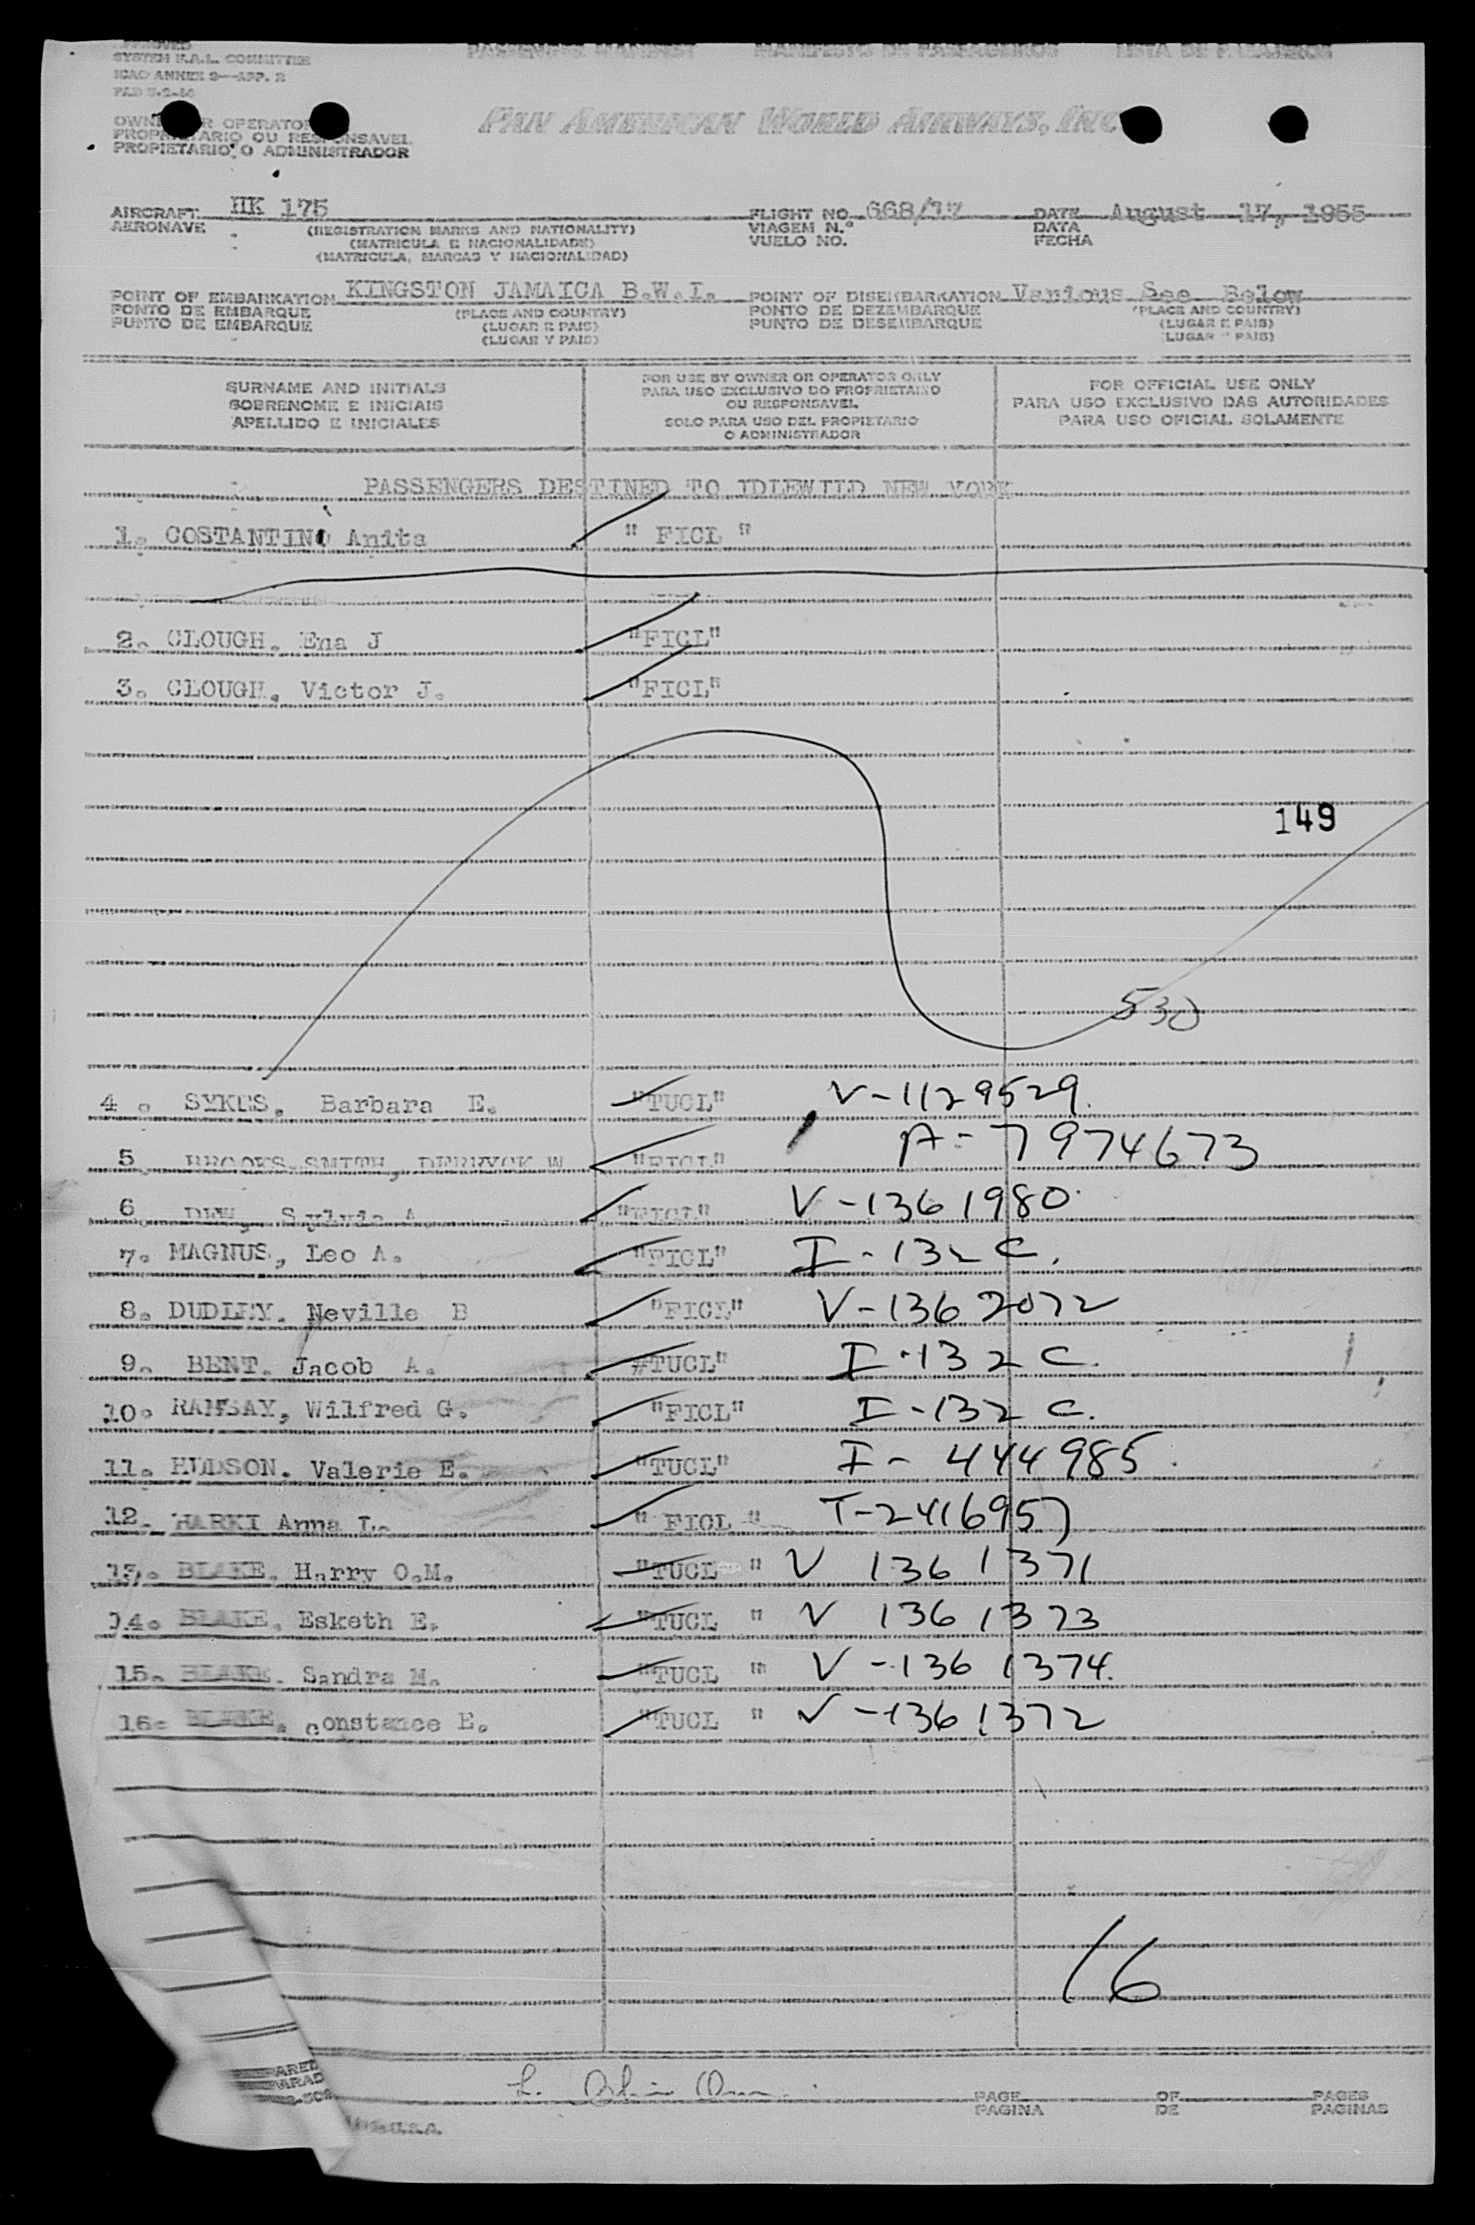 APPROVED
SYSTEM F.A.L. COMMITTEE
ICAO ANNEX 9—APP. 2
PASSENGER MANIFEST MANIFESTO DE PASSAGEIROS LISTA DE PASAJEROS
OWNER OR OPERATOR
PROPRIETARIO OU RESPONSAVEL
PROPIETARIO O ADMINISTRADOR
PAN AMERICAN WORLD AIRWAYS, INC
AIRCRAFT HK 175 FLIGHT NO. 668/17 DATE August 17, 1955
AERONAVE (REGISTRATION MARKS AND NATIONALITY) VIAGEM N.° DATA
(MATRICULA E NACIONALIDADE) VUELO NO. FECHA
(MATRICULA, MARCAS Y NACIONALIDAD)
POINT OF EMBARKATION KINGSTON JAMAICA B.W.I. POINT OF DISEMBARKATION Various See Below
PONTO DE EMBARQUE (PLACE AND COUNTRY) PONTO DE DEZEMBARQUE (PLACE AND COUNTRY)
PUNTO DE EMBARQUE (LUGAR E PAIS) PUNTO DE DESEMBARQUE (LUGAR E PAIS)
(LUGAR Y PAIS) (LUGAR Y PAIS)
SURNAME AND INITIALS
SOBRENOME E INICIAIS
APELLIDO E INICIALES
FOR USE BY OWNER OR OPERATOR ONLY
PARA USO EXCLUSIVO DO PROPRIETARIO
OU RESPONSAVEL
SOLO PARA USO DEL PROPIETARIO
O ADMINISTRADOR
FOR OFFICIAL USE ONLY
PARA USO EXCLUSIVO DAS AUTORIDADES
PARA USO OFICIAL SOLAMENTE
PASSENGERS DESTINED TO IDLEWILD NEW YORK
1. COSTANTINO Anita " FICL "
2. CLOUGH. Ena J "FICL"
3. CLOUGH, Victor J. "FICL"
149
530
4. SYKES, Barbara E. "TUCL" V-1129529.
5 BROOKS-SMITH, DERRYCK W "FICL" A-7974673
6 DEW, Sylvia A "FICL" V-1361980.
7. MAGNUS, Leo A. "FICL" I-132 C.
8. DUDLEY. Neville B "FICL" V-1362072
9. BENT. Jacob A. "TUCL" I-132 C.
10. RAMSAY, Wilfred G. "FICL" I-132 C.
11. HUDSON. Valerie E. "TUCL" I-444985.
12. HARKI Anna L. " FICL " T-2416957
13. BLAKE. Harry O.M. "TUCL " V 1361371
14. BLAKE. Esketh E. "TUCL " V 1361373
15. BLAKE. Sandra M. "TUCL " V-1361374.
16. BLAKE. Constance E. "TUCL " V-1361372
16
PAGE OF PAGES
PAGINA DE PAGINAS
U.S.A.